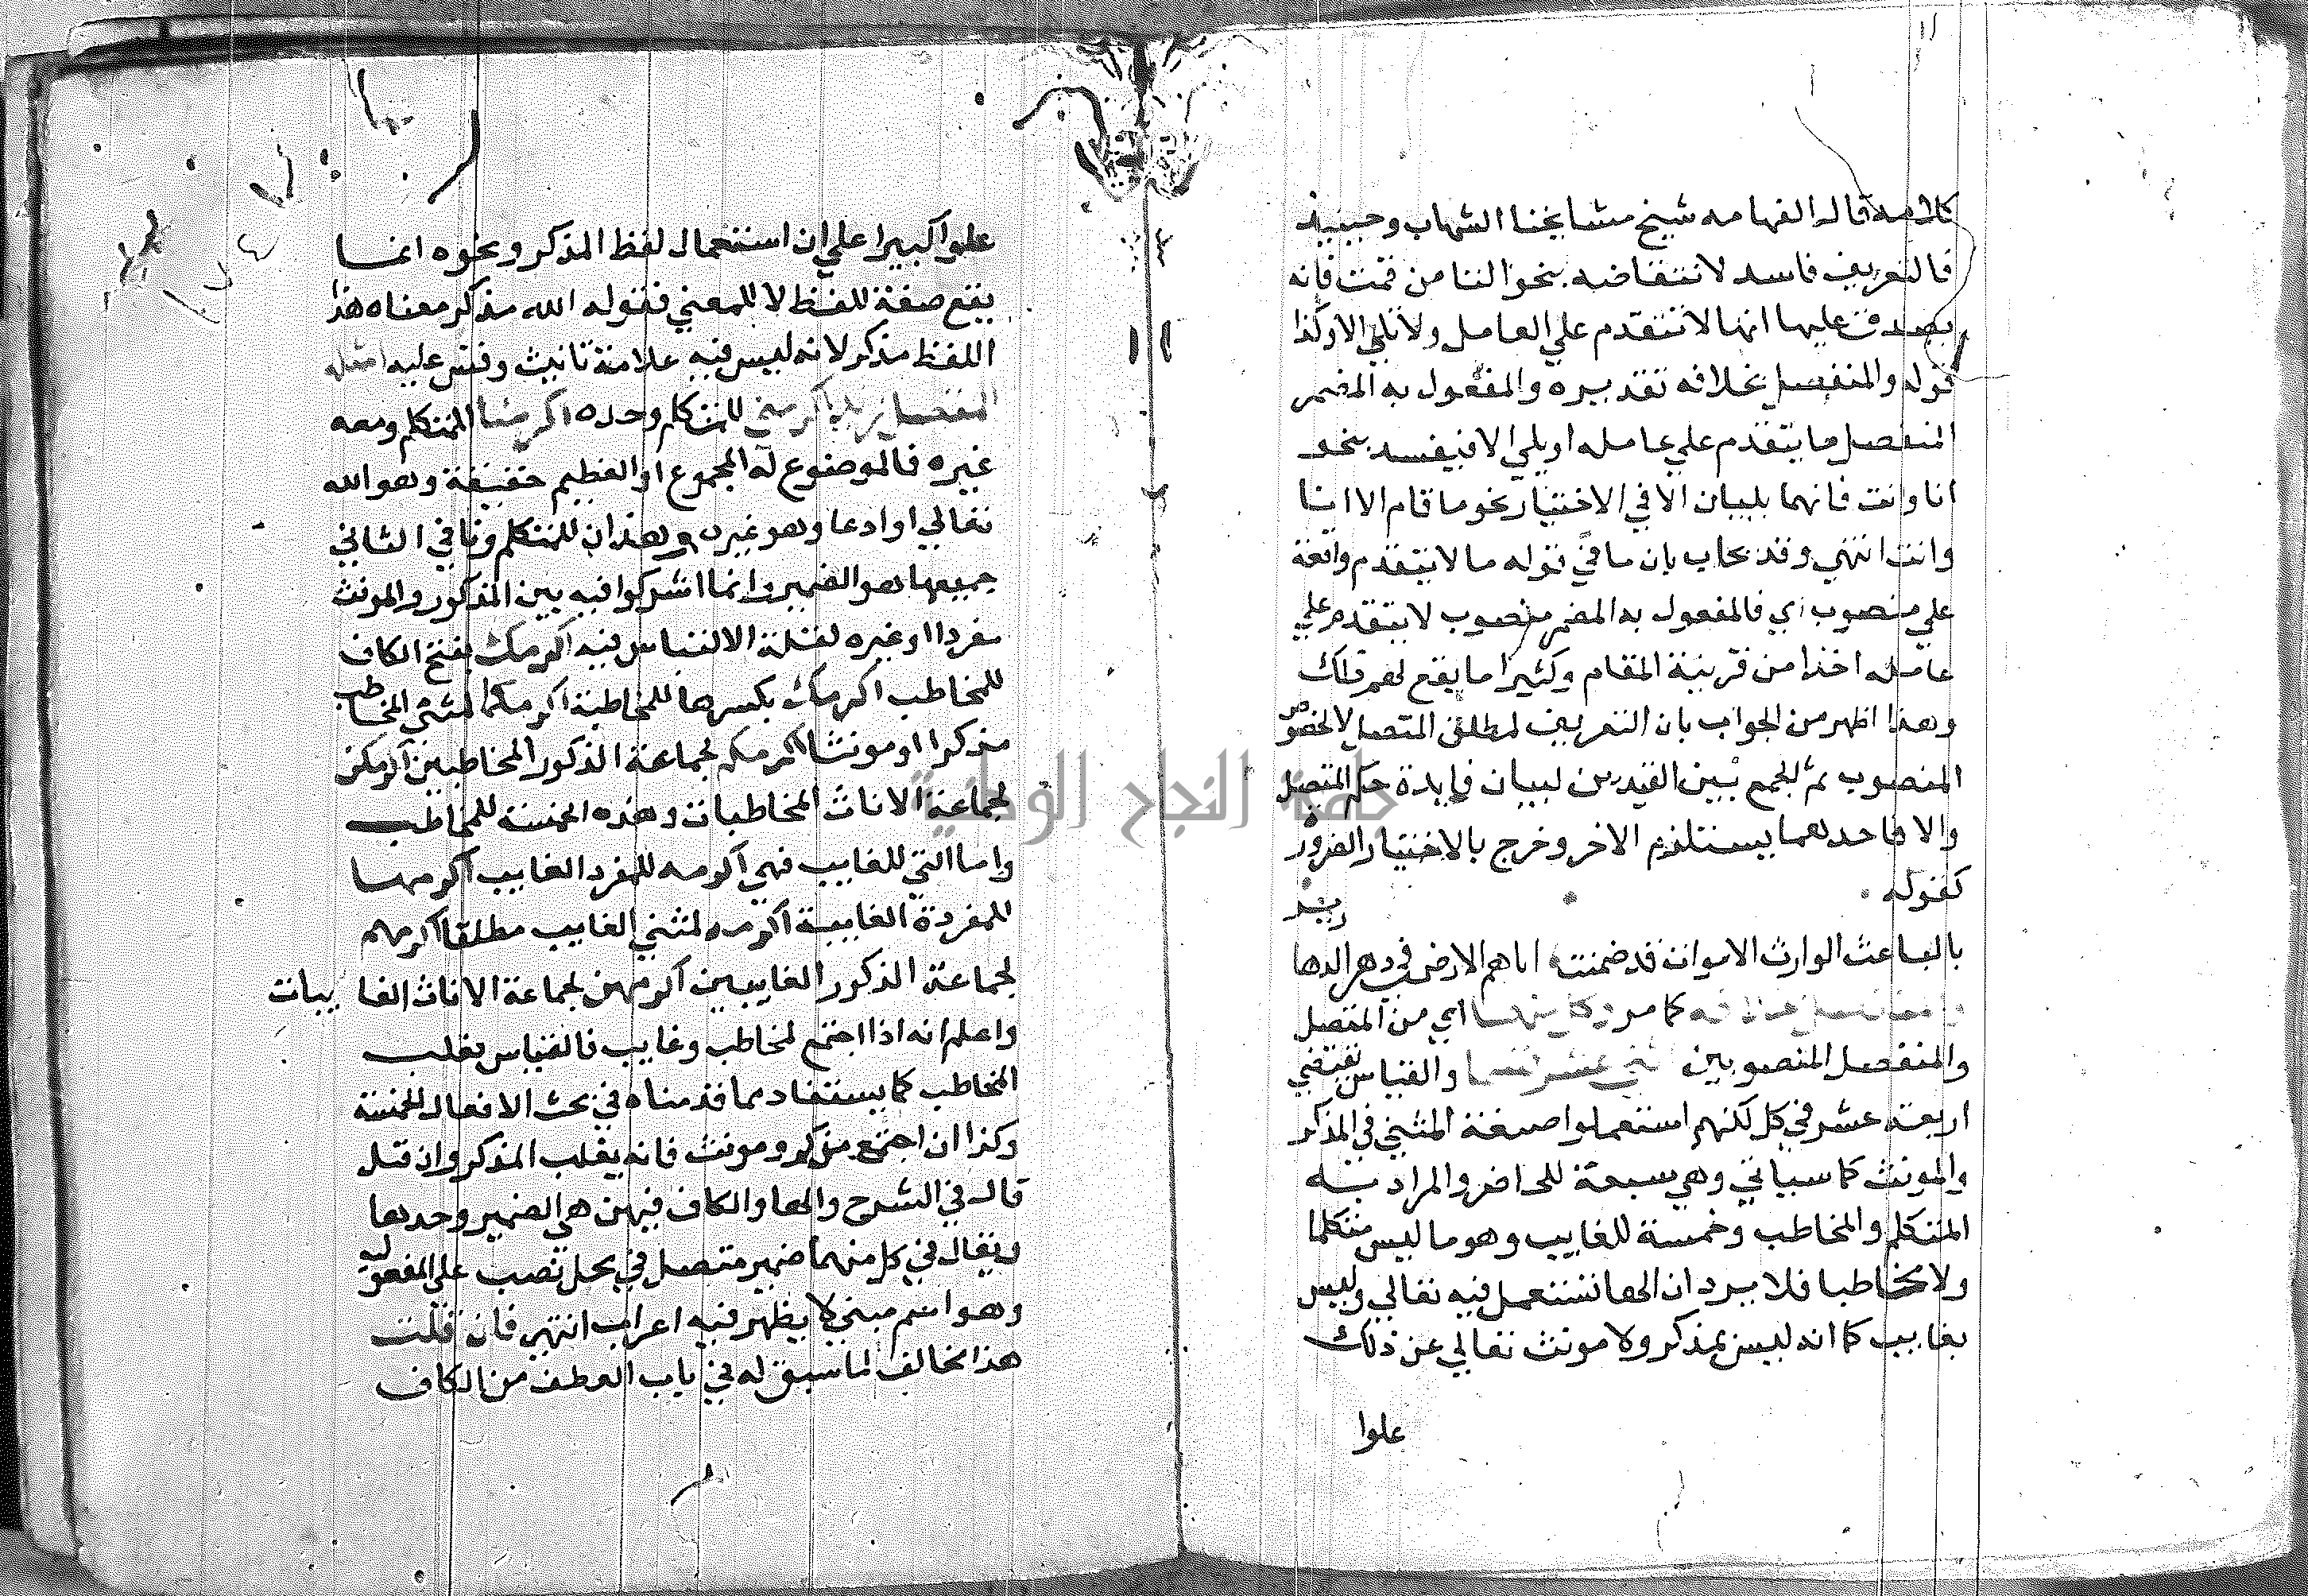 كلامه قال الفهامه شيخ مشايخنا الشهاب وحينيذ
فالتعريف فاسد لانتقاضه بنحو التا من قمت فانه
يصدق عليها انها لا تتقدم علي العامل ولا تلي الا وكذا
قوله والمنفصل بخلافه تقديره والمفعول به المضمر
المنفصل ما يتقدم علي عامله او يلي الا فيفسد بنحو
انا وانت فانهما يليان الا في الاختيار نحو ما قام الا انا
وانت انتهي وقد يجاب بان ما في قوله ما لا يتقدم واقعة
علي منصوب اي فالمفعول به المضمر منصوب لا يتقدم علي
عامله اخذا من قرينة المقام وكثيرا ما يقع لهم ذلك
وهذا اظهر من الجواب بان التعريف لمطلق المتصل لا لخصوص
المنصوب ثم الجمع بين القيدين لبيان فايدة حكم المتصل
والا فاحدهما يستلزم الاخر وخرج بالاختيار الضرورة
كقوله
بالباعث الوارث الاموات قد ضمنت اياهم الارض في دهر الدهارير
كما مر وكل منهما اي من المتصل
والمنفصل المنصوبين اثني عشر قسما والقياس يقتضي
اربعة عشر في كل لكنهم استعملوا صيغة المثني في المذكر
والمونث كما سياتي وهي سبعة للحاضر والمراد به
المتكلم والمخاطب وخمسة للغايب وهو ما ليس متكلما
ولا مخاطبا فلا يرد ان الها تستعمل فيه تعالي وليس
بغايب كما انه ليس بمذكر ولا مونث تعالي عن ذلك
علوا
علوا كبيرا علي ان استعمال لفظ المذكر ونحوه انما
يقع صفة للفظ لا للمعني فقوله الله مذكر معناه هذا
اللفظ مذكر لانه ليس فيه علامة تانيث وقس عليه
اكرمني للمتكلم وحده اكرمنا للمتكلم ومعه
غيره فالموضوع له المجموع او العظيم حقيقة وهو الله
تعالي او ادعا وهو غيره وهذان للمتكلم ونا في الثاني
جميعها هو الضمير وانما اشركوا فيه بين المذكور والمونث
مفردا او غيره لقلة الالتباس فيه اكرمك بفتح الكاف
للمخاطب اكرمك بكسرها للمخاطبة اكرمكما لمثني المخاطب
مذكرا او مونثا اكرمكم لجماعة الذكور المخاطبين اكرمكن
لجماعة الاناث المخاطبات وهذه الخمسة للمخاطب
واما التي للغايب فهي اكرمه للمفرد الغايب اكرمها
للمفردة الغايبة اكرمهما لمثني الغايب مطلقا اكرمهم
لجماعة الذكور الغايبين اكرمهن لجماعة الاناث الغايبات
واعلم انه اذا اجتمع لمخاطب وغايب فالقياس يغلب
المخاطب كما يستفاد مما قدمناه في بحث الافعال الخمسة
وكذا ان اجتمع مذكر ومونث فانه يغلب المذكر وان قل
قال في الشرح والها والكاف فيهن هي الضمير وحدها
ويقال في كل منهما ضمير متصل في محل نصب علي المفعوليه
وهو اسم مبني لا يظهر فيه اعراب انتهي فان قلت
هذا مخالف لما سبق له في باب العطف من الكاف
جامعة النجاح الوطنية